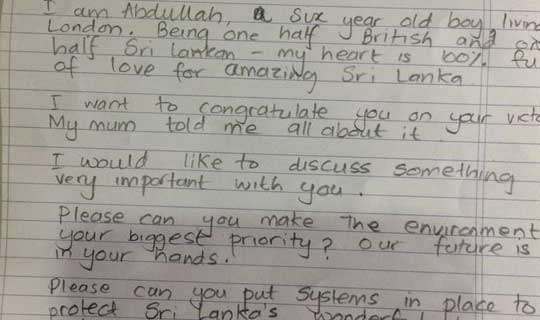 I am Abdullah, a six year old boy living
London. Being one half British and
half Sri Lankan - my heart is 100%
of love for amazing Sri Lanka
I want to congratulate you on your
My mum told me all about it
I would like to discuss something
very important with you.
Please can you make the environment
your biggest priority? Our future is
in your hands.
Please can you put systems in place to
protect Sri Lanka's